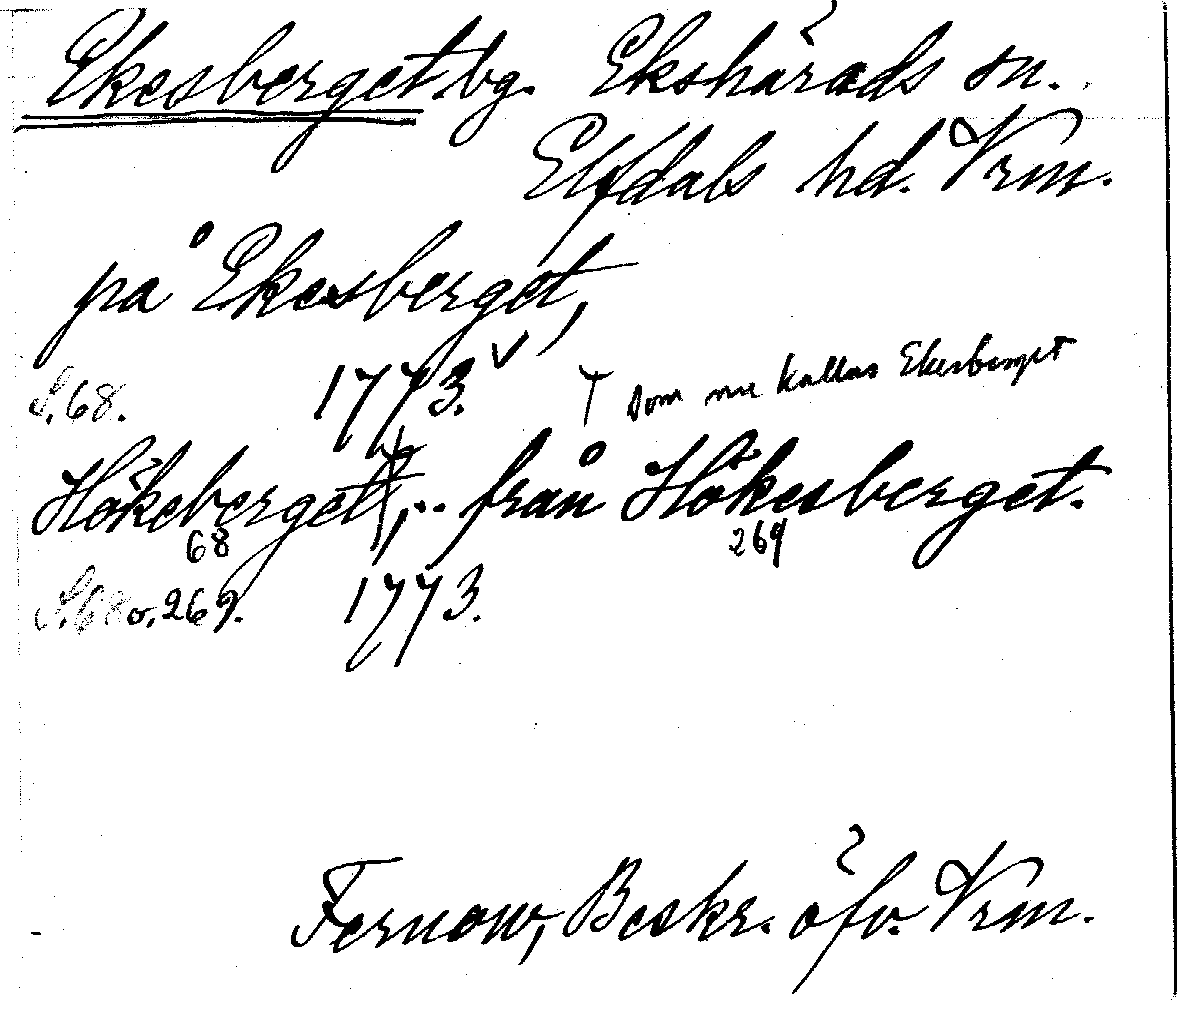 Ekesberget bg. Ekshärads sn.
Elfdals hd. Vrm.
på Ekesberget,
S. 68. 1773. ✓ † som nu kallas Ekesberget
Hökeberget†,.. från Hökesberget.
68 269
S. 68 o. 269. 1773.
Fernow, Beskr. öfv. Vrm.